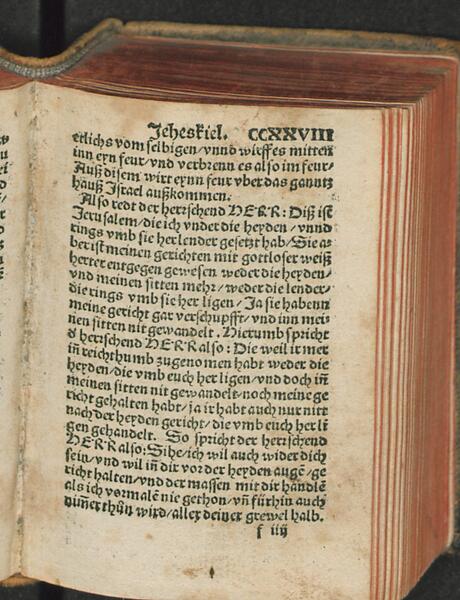 Jeheskiel. CCXXVIII
etlichs vom selbigen/vnnd wirff es mitten
inn eyn feur/vnd verbrenn es also im feur/
Auß disem wirt eynn feur vber das gantz
hauß Israel außkommen.
Also redt der herrschend HERR: Diß ist
Jerusalem/die ich vnder die heyden/vnnd
rings vmb sie her lender gesetzt hab/Sie a⸗
ber ist meinen gerichten mit gottloser weiß
herter entgegen gewesen weder die heyden/
vnd meinen sitten mehr/weder die lender/
die rings vmb sie her ligen/Ja sie habenn
meine gericht gar verschupfft/vnd inn mei⸗
nen sitten nit gewandelt. Hierumb spricht
d herrschend HERR also: Die weil ir mer
in̄ reichthumb zugenomen habt weder die
heyden/die vmb euch her ligen/vnd doch in̄
meinen sitten nit gewandelt/noch meine ge
richt gehalten habt/ja ir habt auch nur nitt
nach der heyden gericht/die vmb euch her li
gen gehandelt. So spricht der herrschend
HERR also: Sihe/ich wil auch wider dich
sein/vnd wil in̄ dir vor der heyden augē/ge
richt halten/vnd der massen mit dir handlē
als ich vormalē nie gethon/vn̄ fürhin auch
nim̄er thůn wird/aller deiner grewel halb.
f iiij